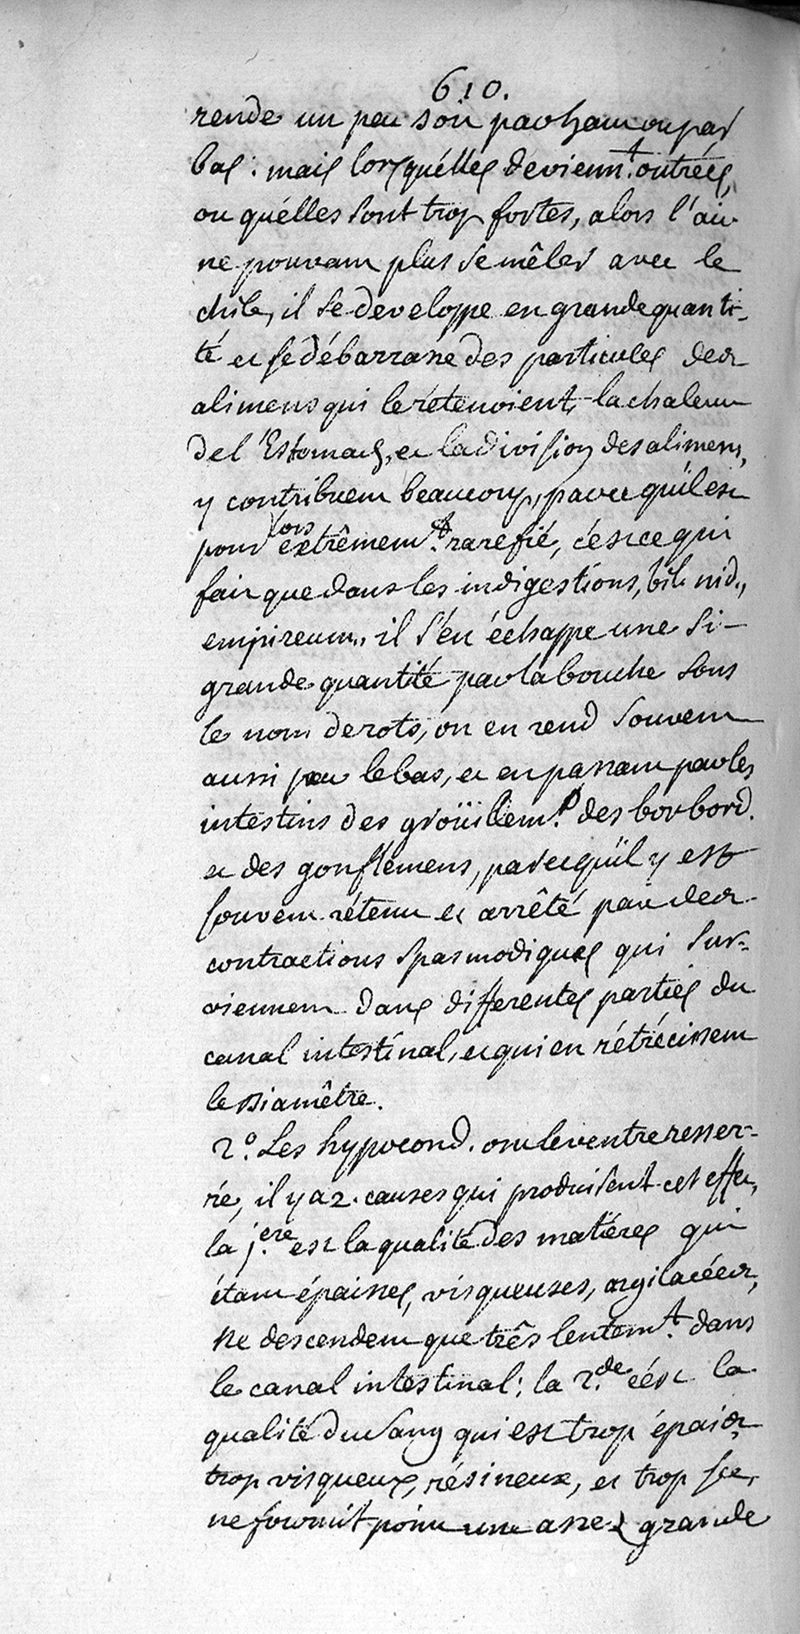 610.
rende un peu soit par haut ou par
bas : mais lorsquélles devienn.t outrées,
ou quélles sont trop fortes, alors l'air
ne pouvant plus se mêler avec le
chile, il se developpe en grande quanti-
té et se débarrasse des particules des
alimens qui le rétenoient, la chaleur
de l'Estomach, et la division des alimens,
y contribuent beaucoup, parce qu'il est
pour lors extrêmem.t rarefié, c'est ce qui
fait que dans les indigestions, bil. nid.,
empireum., il s'en échappe une si-
grande quantité par la bouche sous
le nom de rots, on en rend souvent
aussi par le bas, et en passant par les
intestins des groüillem.s des borbord.
et des gonflemens, parce qu'il y est
souvent rétenu et arrêté par des
contractions spasmodiques qui sur-
viennent dans differentes parties du
canal intestinal, et qui en rétrécissent
le diamêtre.
2.° Les hypocond. ont le ventre resser-
ré, il y a 2. causes qui produisent cet effet,
la j.ere est la qualité des matiéres qui
étant épaisses, visqueuses, argilacées,
ne descendent que três lentem.t dans
le canal intestinal; la 2.de c'ést la
qualité du sang qui est trop épais,
trop visqueux, résineux, et trop sec,
ne fournit point une assez grande